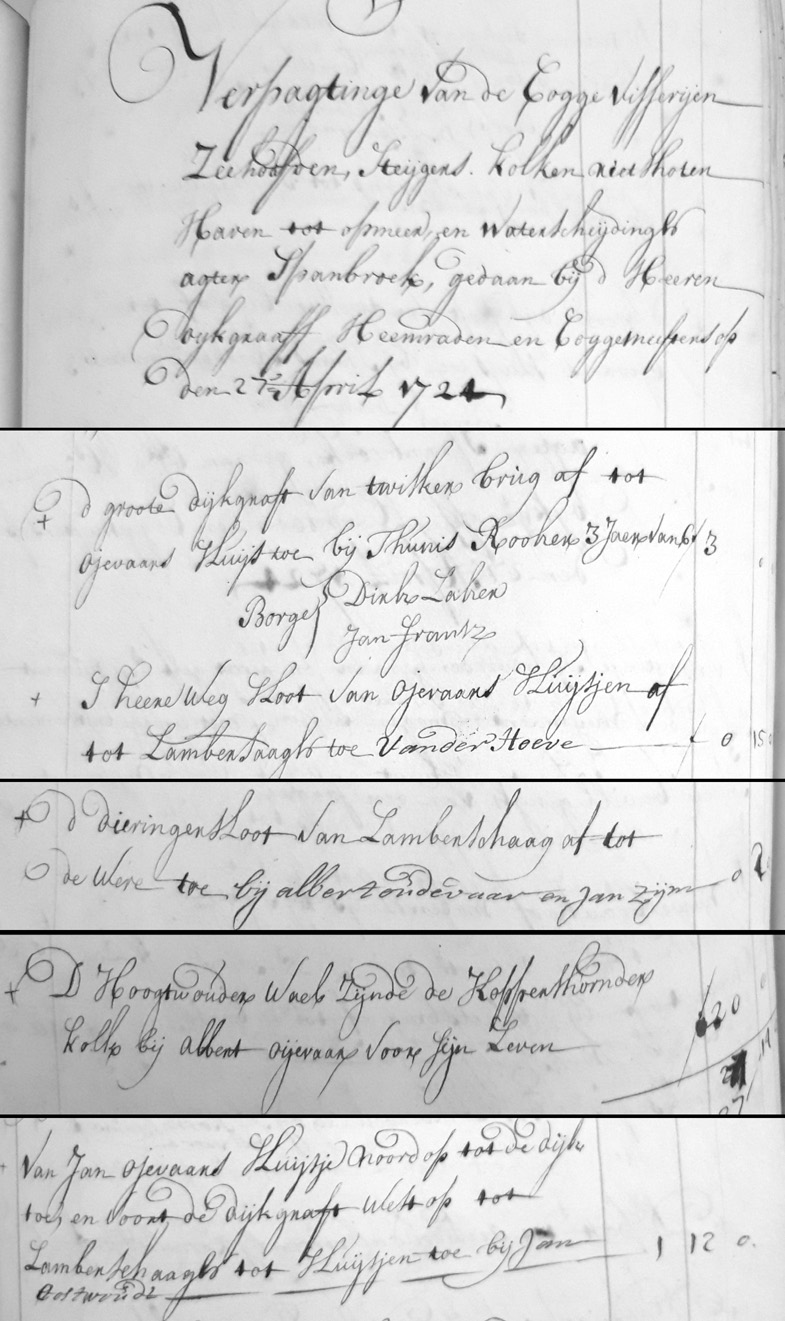 Verpagtinge van de Cogge Visserijen
Zeehoofden, Steijgers. Kolken rietschoten
Haven tot opmeer, en Waterscheijdingh
agter Spanbroek, gedaan bij d Heeren
Dijkgraaff Heemraden en Coggemeesters op
den 27 April 1724
+ d groote dijkgraft van twisker brug af tot
ojevaars Huijs toe bij Thunis Rooker 3 Jaer van 6 f 3
Borge Dirk Laken
Jan Frantz
+ S heere Weg Sloot van ojevaars Huijsjen af
tot Lambertsaagh toe Vander Hoeve f 0 15
+ d dieringer Sloot van Lambertschaag af tot
de Were toe bij albert oudevaar en Jan Zijm 0
+ D Hoogtwouder Wael Zijnde de Kopperthornder
kolk bij albert oijevaar voor sijn Leven f 20
Van Jan ojevaars Huijsje noord op tot de dijk
toe, en voort de dijkgraft West op tot
Lambertschaagh tot Huijsjen toe bij Jan 1 12 0.
Oostwoudt